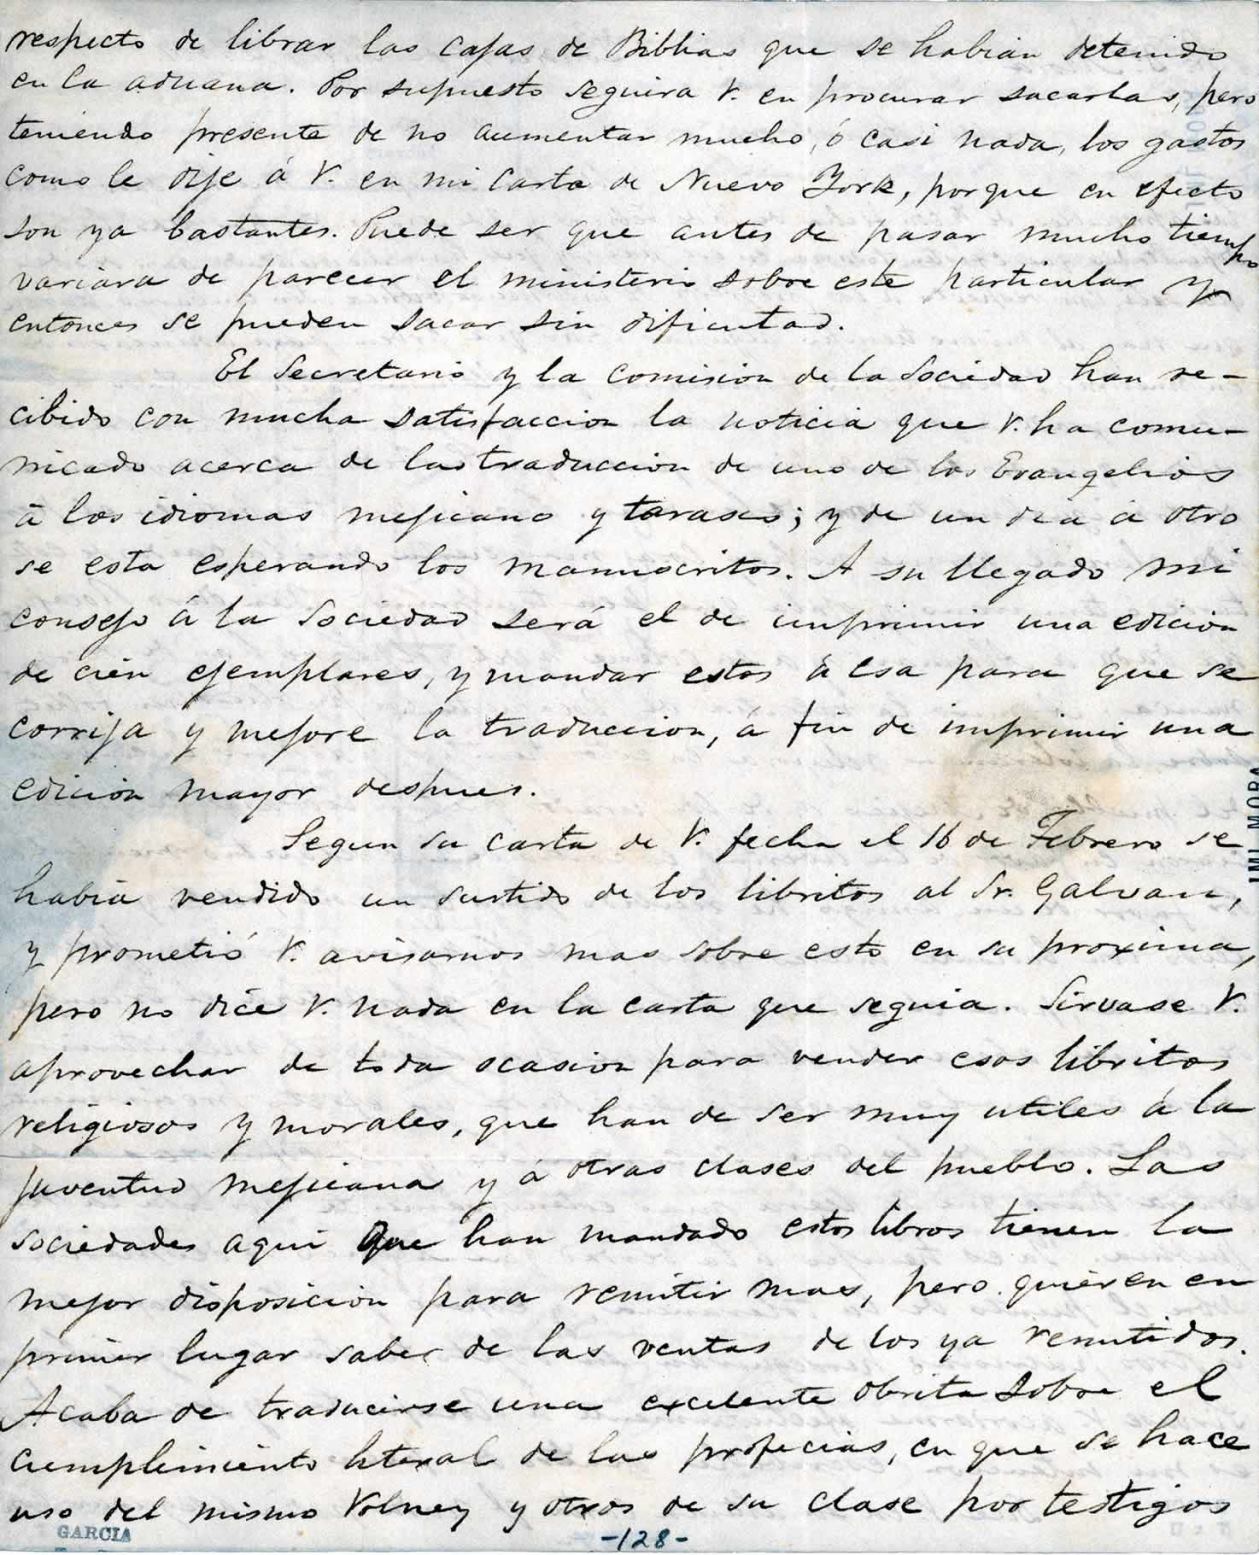 respecto de librar las cajas de Biblias que se habian detenido
en la aduana. Por supuesto seguira V. en procurar sacarlas, pero
teniendo presente de no aumentar mucho, ó casi nada, los gastos
como le dije á V. en mi carta de Nuevo York, porque en efecto
son ya bastantes. Puede ser que antes de pasar mucho tiempo
variara de parecer el ministerio sobre este particular y
entonces se pueden sacar sin dificultad.
El Secretario y la comision de la Sociedad han re-
cibido con mucha satisfaccion la noticia que V. ha comu-
nicado acerca de la traduccion de uno de los Evangelios
á los idiomas mejicano y tarasco; y de un dia á otro
se esta esperando los manuscritos. A su llegado mi
consejo á la Sociedad será el de imprimir una edicion
de cien ejemplares, y mandar estos á esa para que se
corrija y mejore la traduccion, á fin de imprimir una
edicion mayor despues.
Segun su carta de V. fecha el 16 de Febrero se
habia vendido un surtido de los libritos al Sr. Galvan,
y prometió V. avisarnos mas sobre esto en su proxima,
pero no dice V. nada en la carta que seguia. Sirvase V.
aprovechar de toda ocasion para vender esos libritos
religiosos y morales, que han de ser muy utiles á la
juventud mejicana y á otras clases del pueblo. Las
sociedades aqui que han mandado estos libros tienen la
mejor disposicion para remitir mas, pero quieren en
primer lugar saber de las ventas de los ya remitidos.
Acaba de traducirse una excelente obrita sobre el
cumplimiento literal de las profecias, en que se hace
uso del mismo Volney y otros de su clase por testigos
GARCIA
-128-
MORA